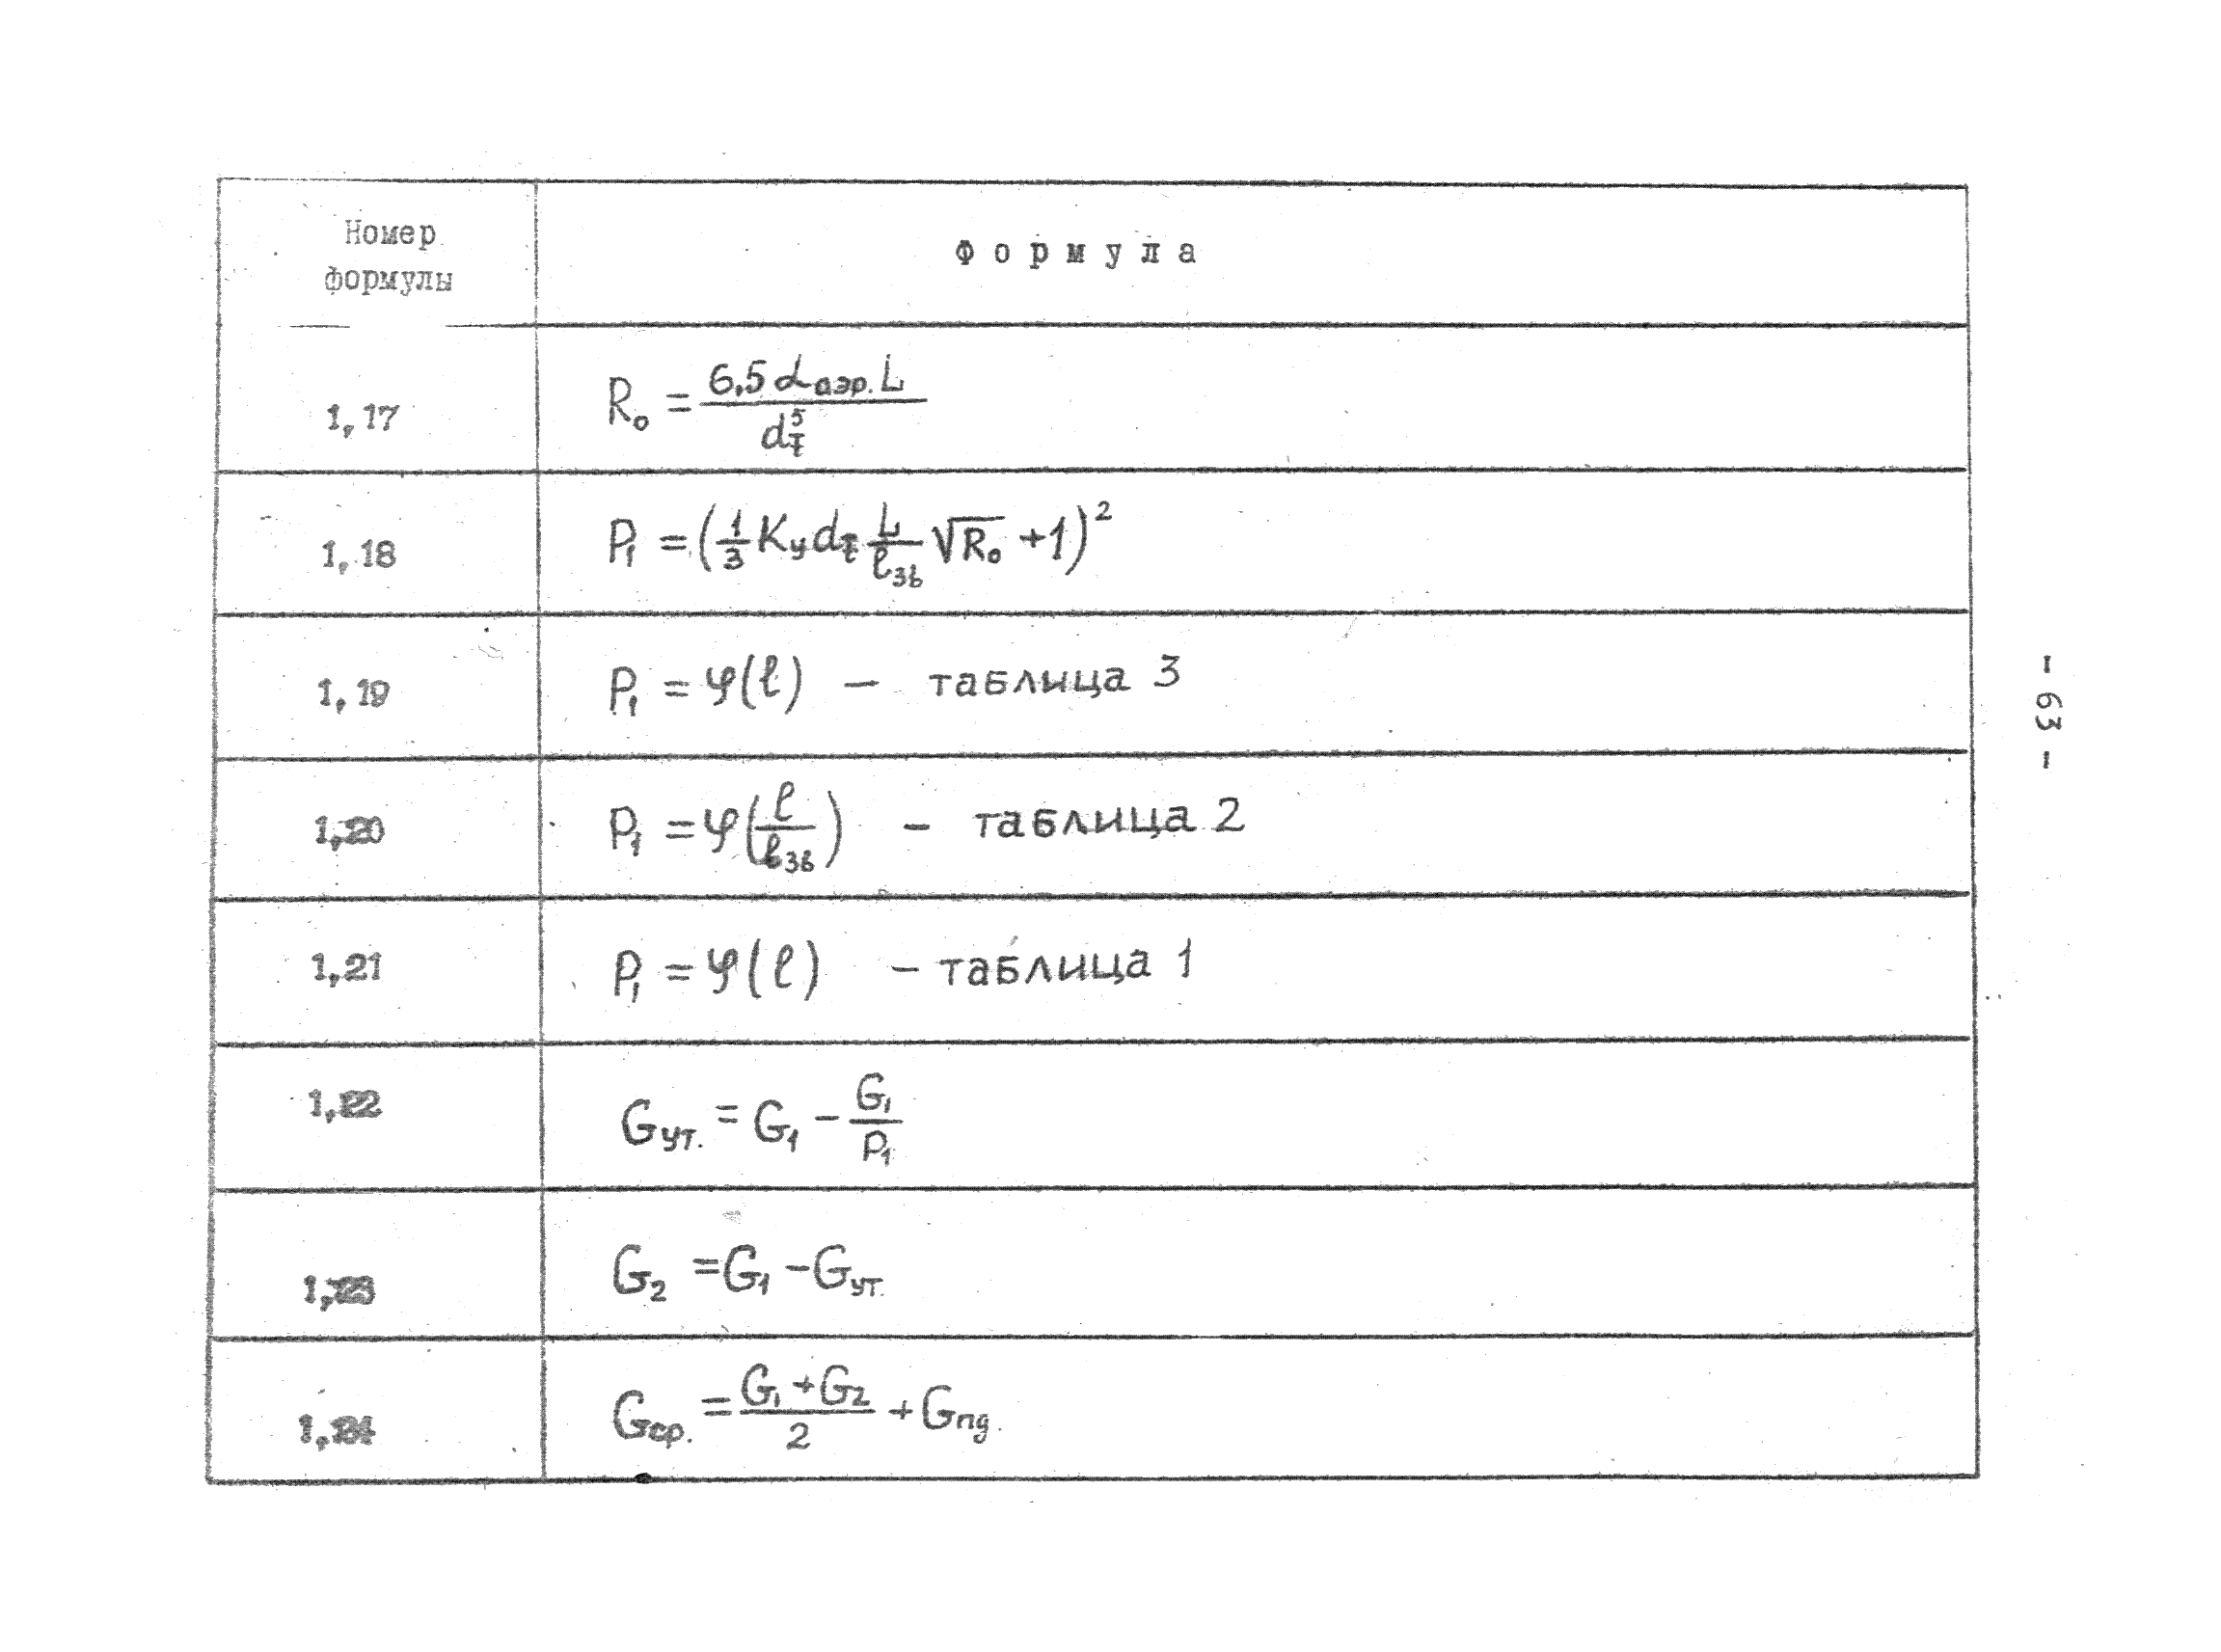 Номер формулы
Формула
1,17
R₀ = 6,5 α аэр. L / d_т⁵
1,18
P₁ = (1/3 Kу dт L/ℓзв √R₀ + 1)²
1,19
P₁ = φ(ℓ) – таблица 3
1,20
P₁ = φ(ℓ/ℓзв) – таблица 2
1,21
P₁ = φ(ℓ) – таблица 1
1,22
Gут. = G₁ – G₁/P₁
1,23
G₂ = G₁ – Gут.
1,24
Gср. = (G₁ + G₂)/2 + Gпд.
- 63 -